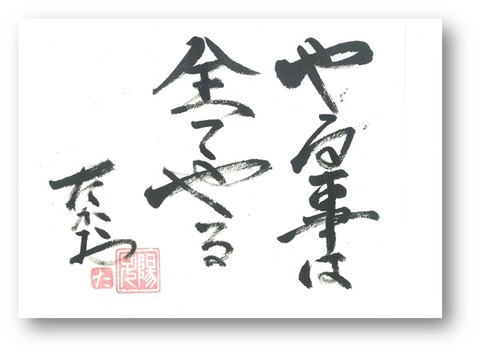 やる事は
全てやる
たかお
た